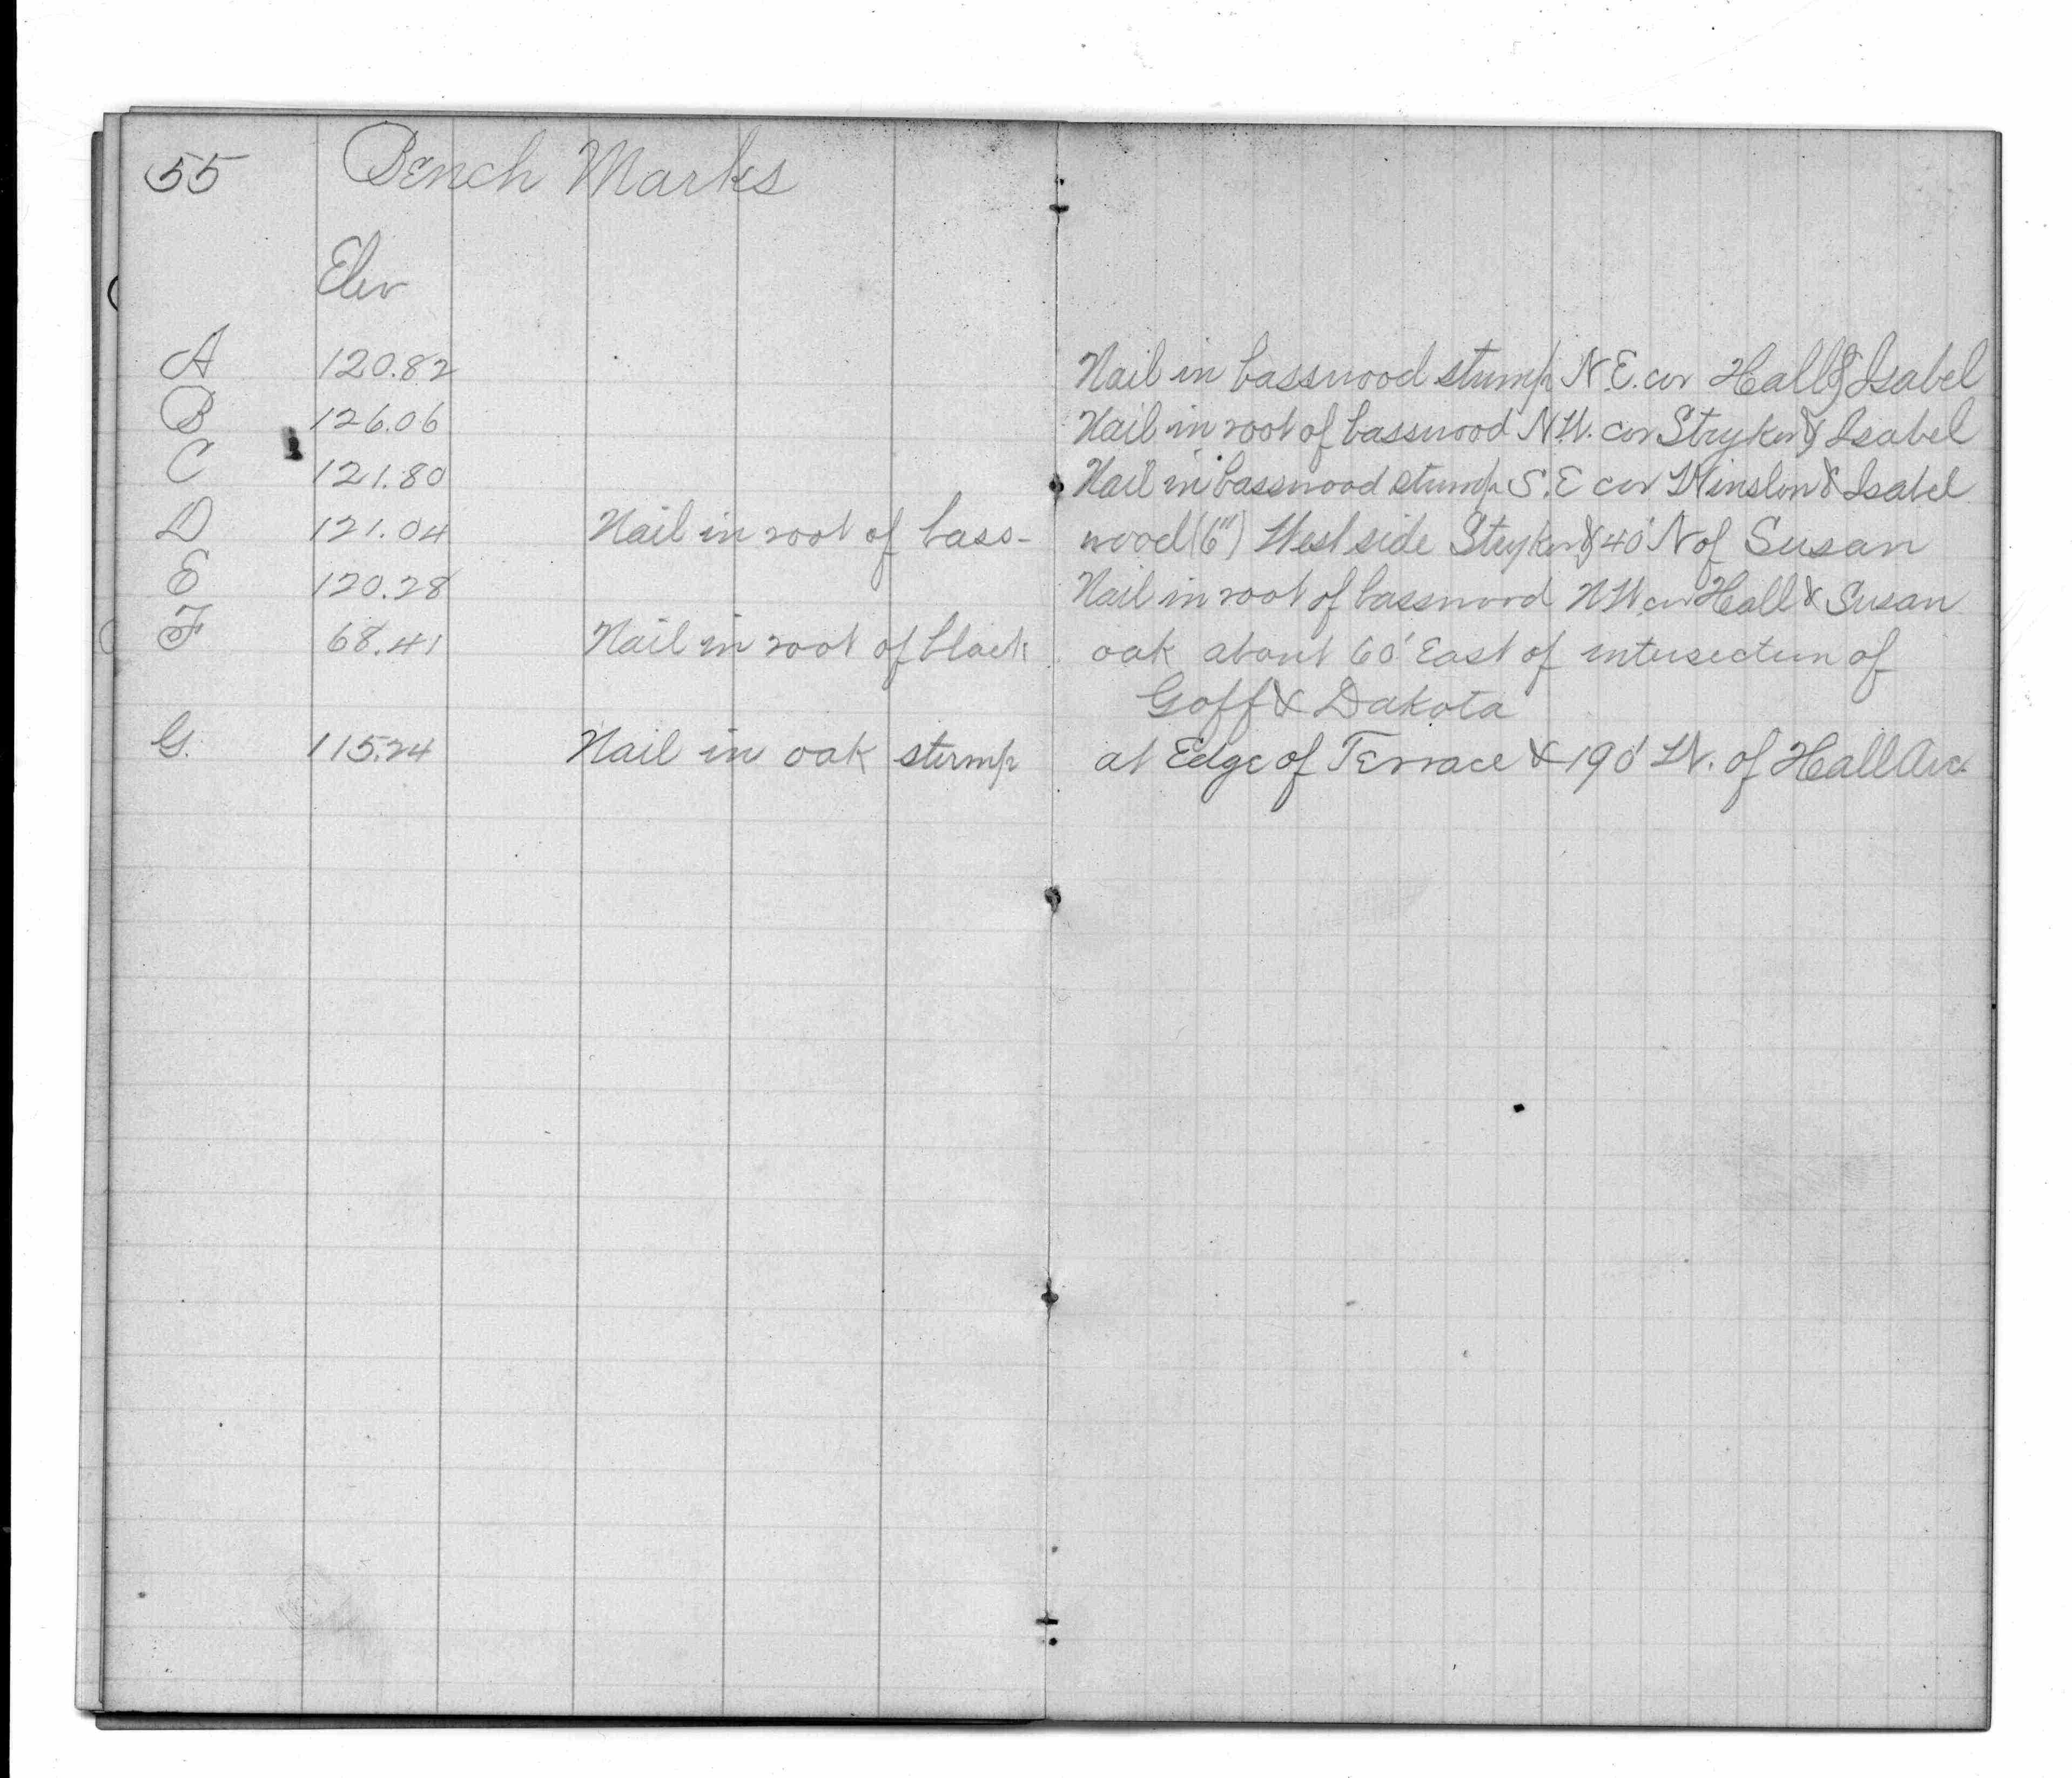 55 Bench Marks
Elev
A 120.82 Nail in basswood stump N.E. cor Hall & Isabel
B 126.06 Nail in root of basswood N.W. cor Stryker & Isabel
C 121.80 Nail in basswood stump S.E cor Winslow & Isabel
D 121.04 Nail in root of bass- wood (6") West side Stryker & 40' N of Susan
E 120.28 Nail in root of basswood N.W. cor Hall & Susan
F 68.41 Nail in root of black oak about 60' East of intersection of
Goff & Dakota
G. 115.24 Nail in oak stump at Edge of Terrace & 190' W. of Hall Ave.